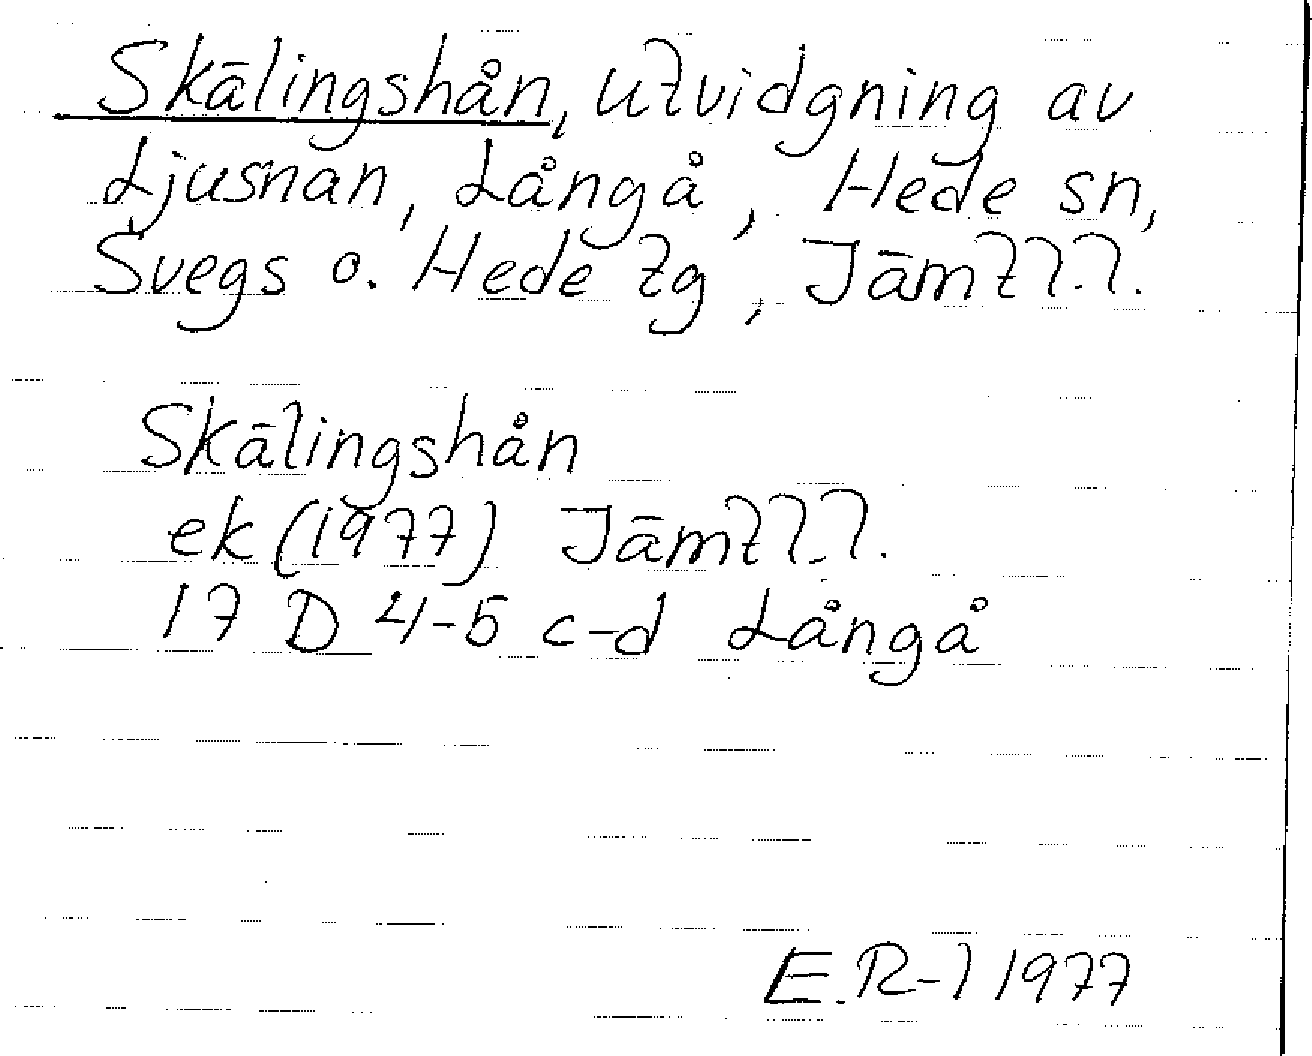 Skälingshån, utvidgning av
Ljusnan, Långå, Hede sn,
Svegs o. Hede tg, Jämtl.l.
Skälingshån
ek (1977) Jämtl.l.
17 D 4-5 c-d Långå
E.R-l 1977